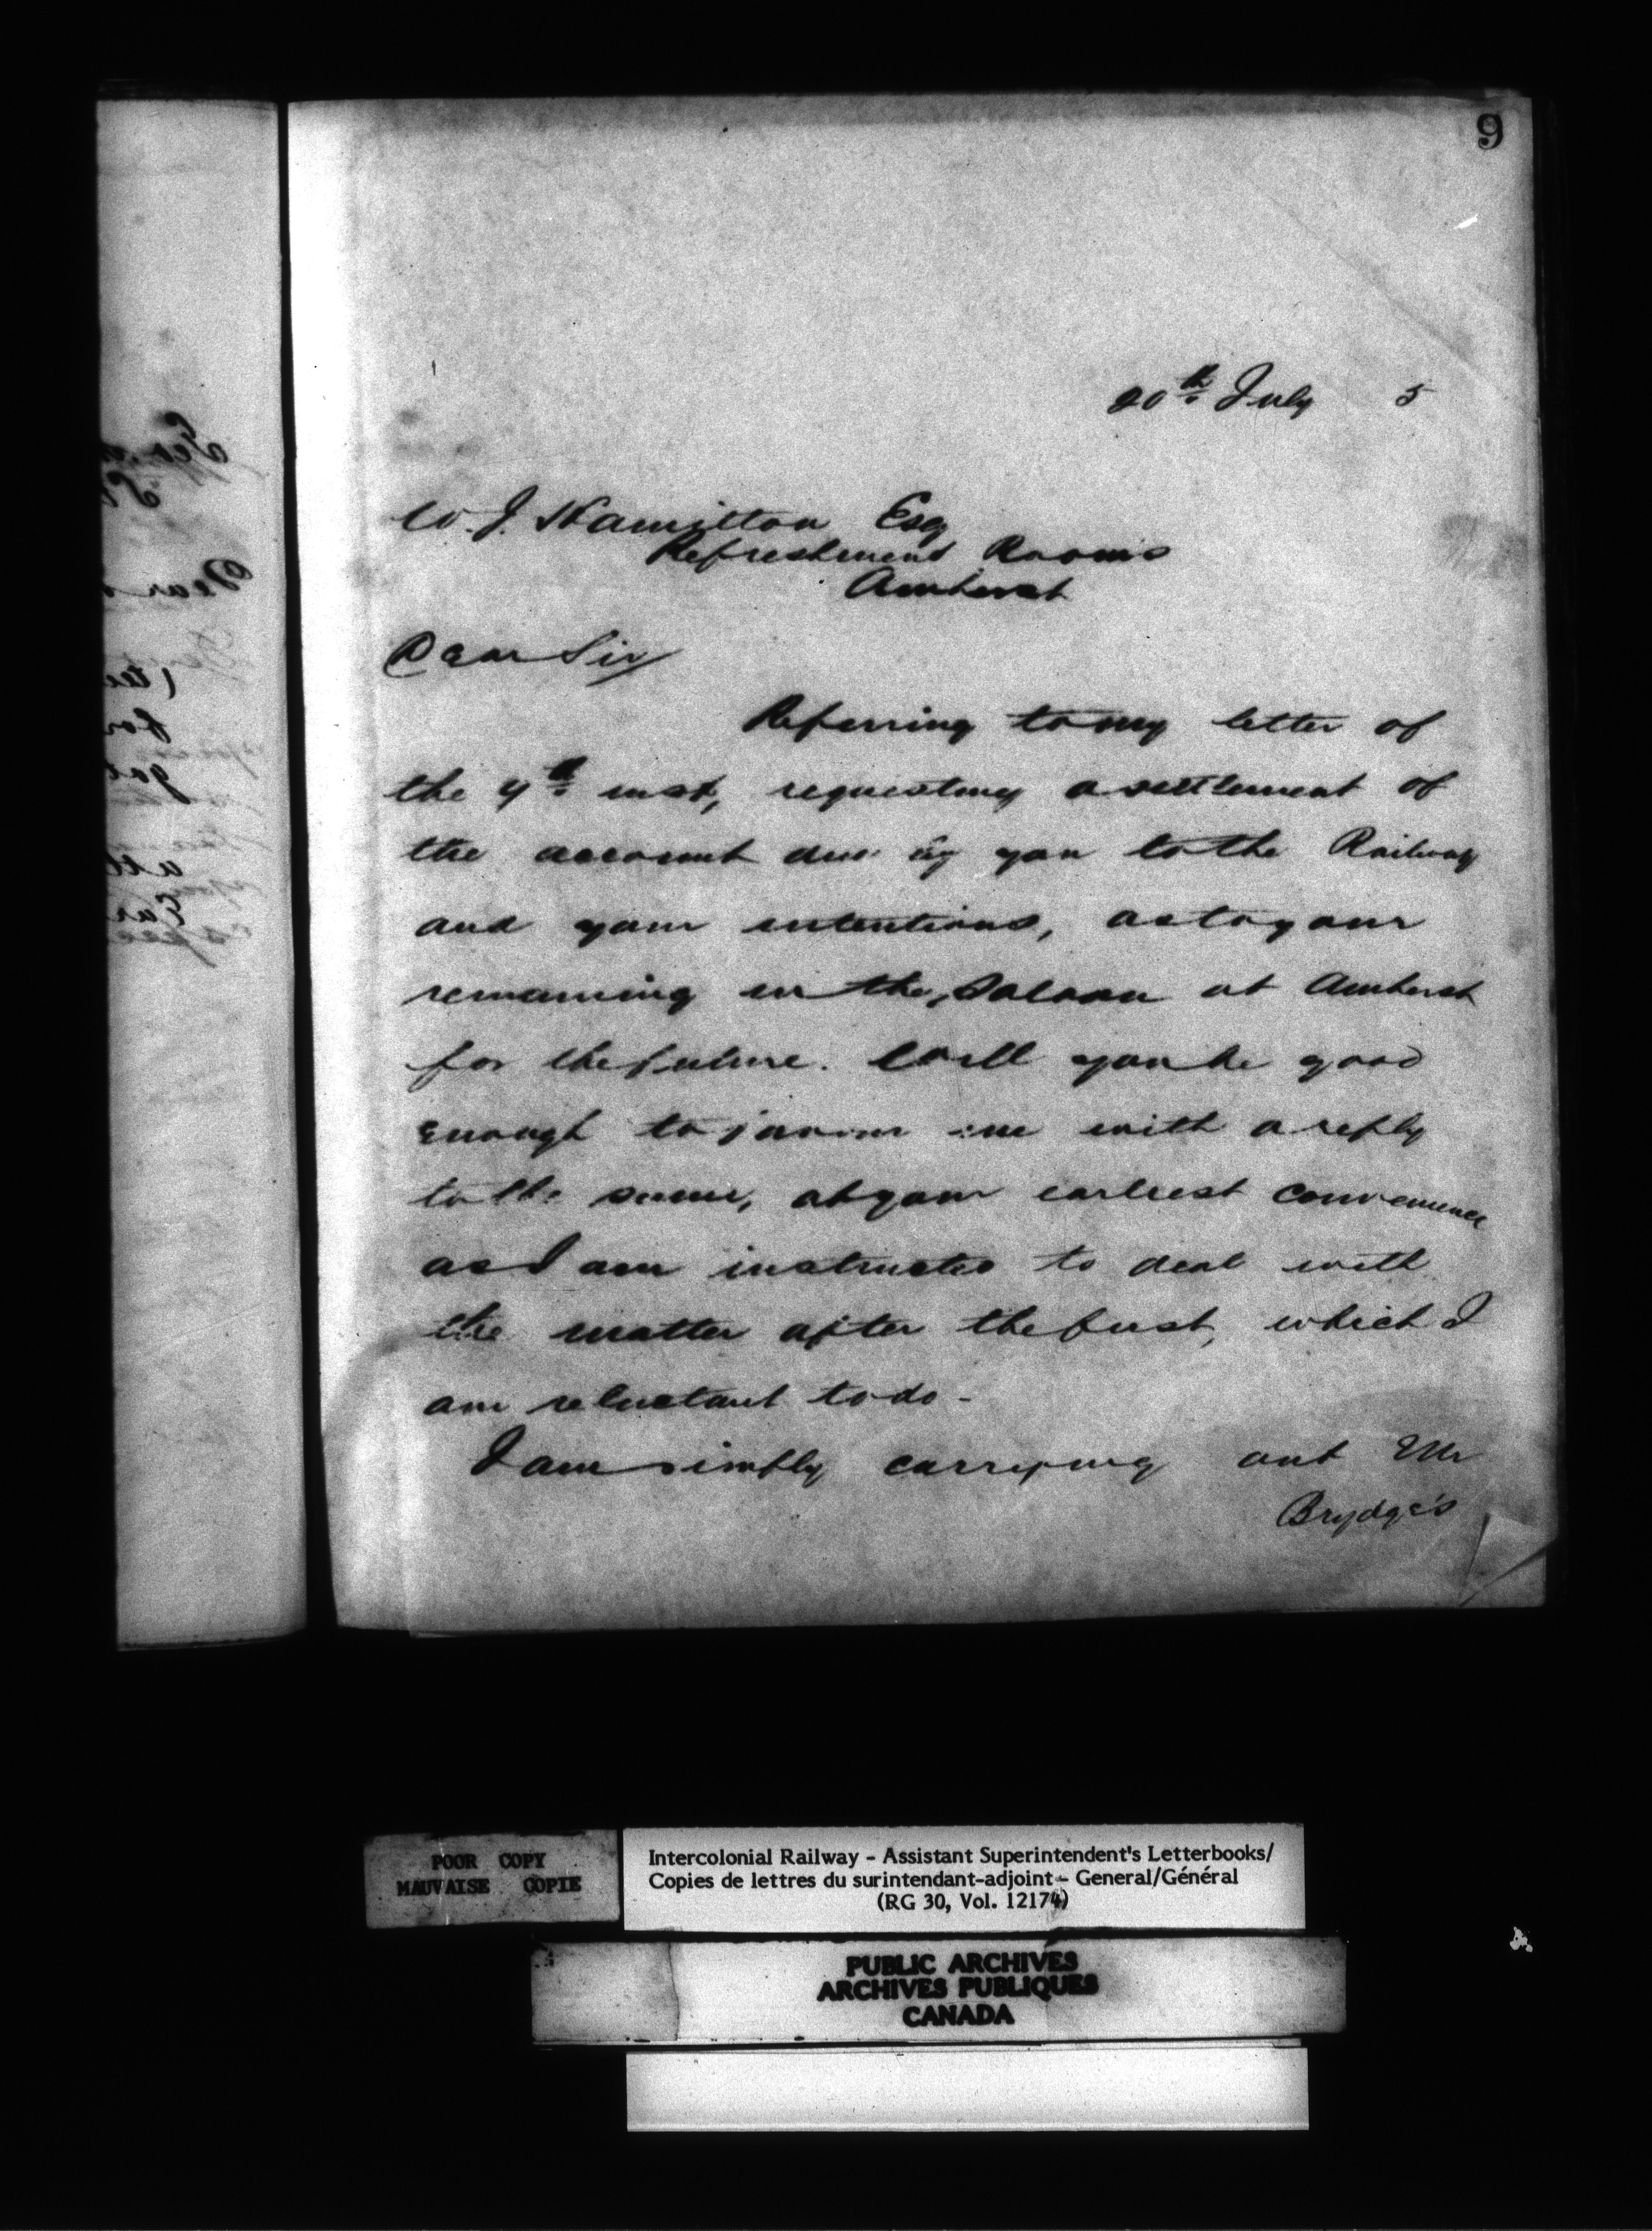 9
20th July 5
W. J. Hamilton Esq
Refreshment Rooms
Amherst
Dear Sir
Referring to my letter of
the 9th inst, requesting a settlement of
the account due by you to the Railway
and your intentions, as to your
remaining in the Saloon at Amherst
for the future. Will you be good
enough to favour me with a reply
to the same, at your earliest convenience
as I am instructed to deal with
the matter after the first, which I
am reluctant to do -
I am simply carrying out Mr
Brydge's
POOR COPY
MAUVAISE COPIE
Intercolonial Railway - Assistant Superintendent's Letterbooks/
Copies de lettres du surintendant-adjoint - General/Général
(RG 30, Vol. 12174)
PUBLIC ARCHIVES
ARCHIVES PUBLIQUES
CANADA